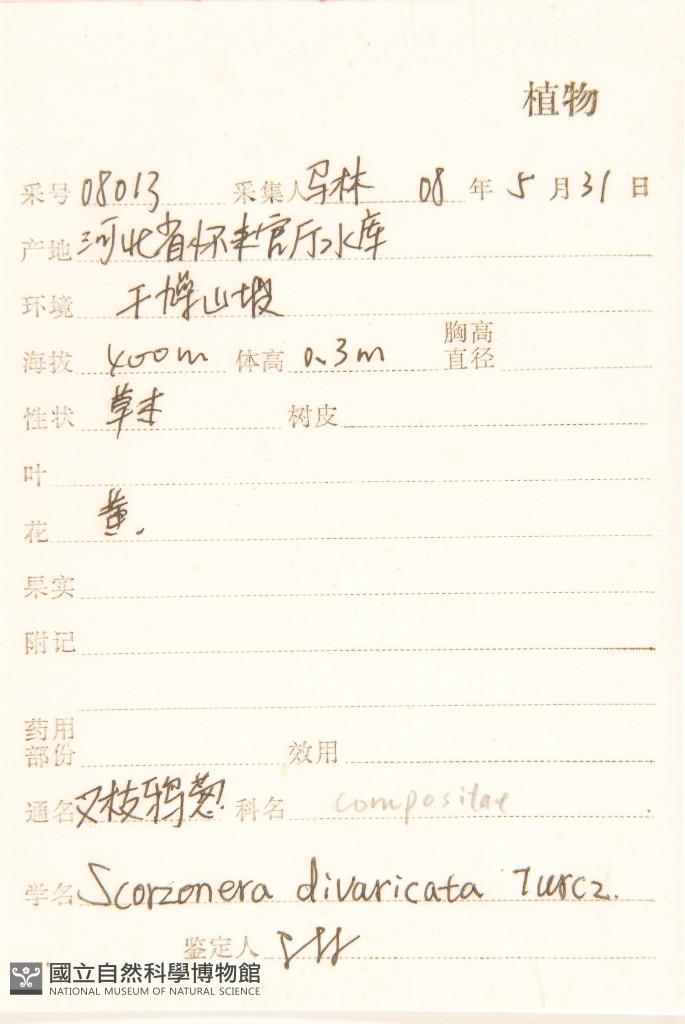 植物
采号 08013 采集人 马林 08 年 5 月 31 日
产地 河北省怀来官厅水库
环境 干燥山坡
海拔 400m 体高 0.3m 胸高直径
性状 草本 树皮
叶
花 黄.
果实
附记
药用部份 效用
通名 叉枝鸦葱 科名 compositae
学名 Scorzonera divaricata Turcz.
鉴定人
國立自然科學博物館
NATIONAL MUSEUM OF NATURAL SCIENCE